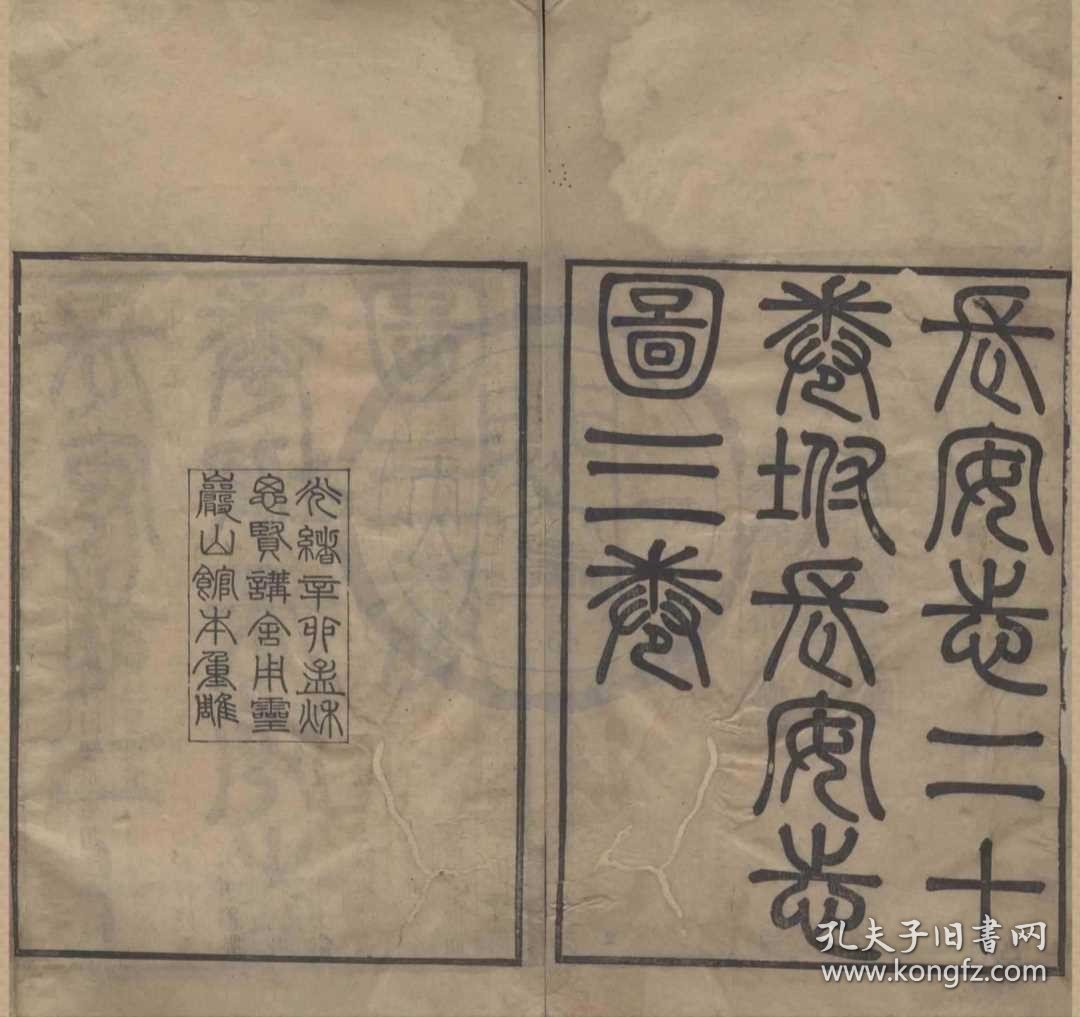 長安志二十
卷坿長安志
圖三卷
光緒辛卯孟秌
思賢講舍用靈
巖山館本重雕
孔夫子旧书网
www.kongfz.com